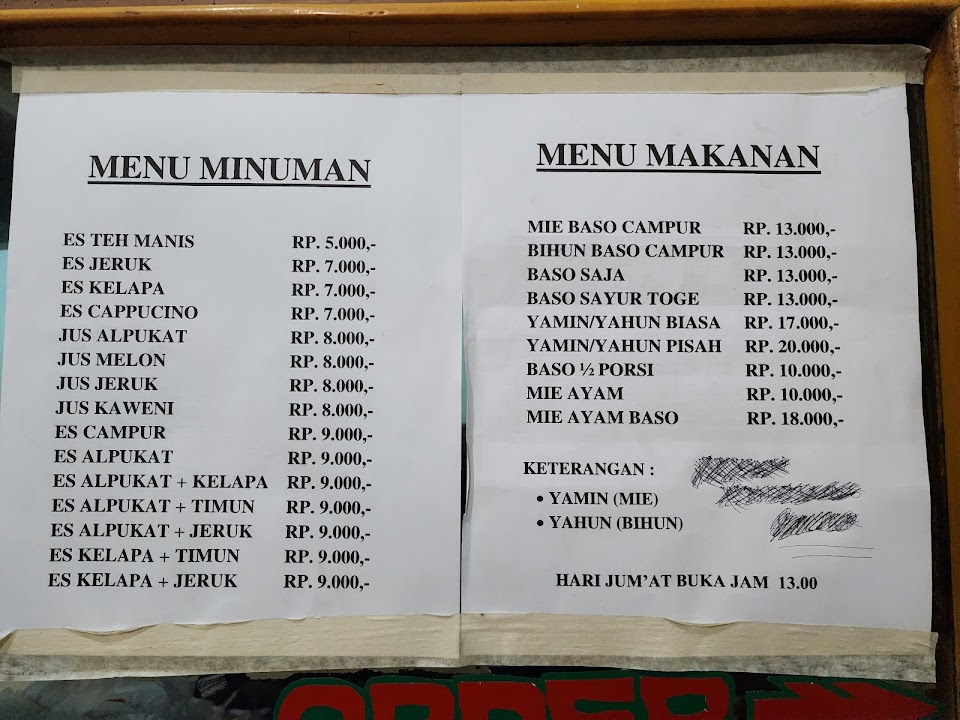 MENU MINUMAN
ES TEH MANIS RP. 5.000,-
ES JERUK RP. 7.000,-
ES KELAPA RP. 7.000,-
ES CAPPUCINO RP. 7.000,-
JUS ALPUKAT RP. 8.000,-
JUS MELON RP. 8.000,-
JUS JERUK RP. 8.000,-
JUS KAWENI RP. 8.000,-
ES CAMPUR RP. 9.000,-
ES ALPUKAT RP. 9.000,-
ES ALPUKAT + KELAPA RP. 9.000,-
ES ALPUKAT + TIMUN RP. 9.000,-
ES ALPUKAT + JERUK RP. 9.000,-
ES KELAPA + TIMUN RP. 9.000,-
ES KELAPA + JERUK RP. 9.000,-
MENU MAKANAN
MIE BASO CAMPUR RP. 13.000,-
BIHUN BASO CAMPUR RP. 13.000,-
BASO SAJA RP. 13.000,-
BASO SAYUR TOGE RP. 13.000,-
YAMIN/YAHUN BIASA RP. 17.000,-
YAMIN/YAHUN PISAH RP. 20.000,-
BASO ½ PORSI RP. 10.000,-
MIE AYAM RP. 10.000,-
MIE AYAM BASO RP. 18.000,-
KETERANGAN :
• YAMIN (MIE)
• YAHUN (BIHUN)
HARI JUM'AT BUKA JAM 13.00
ORDER